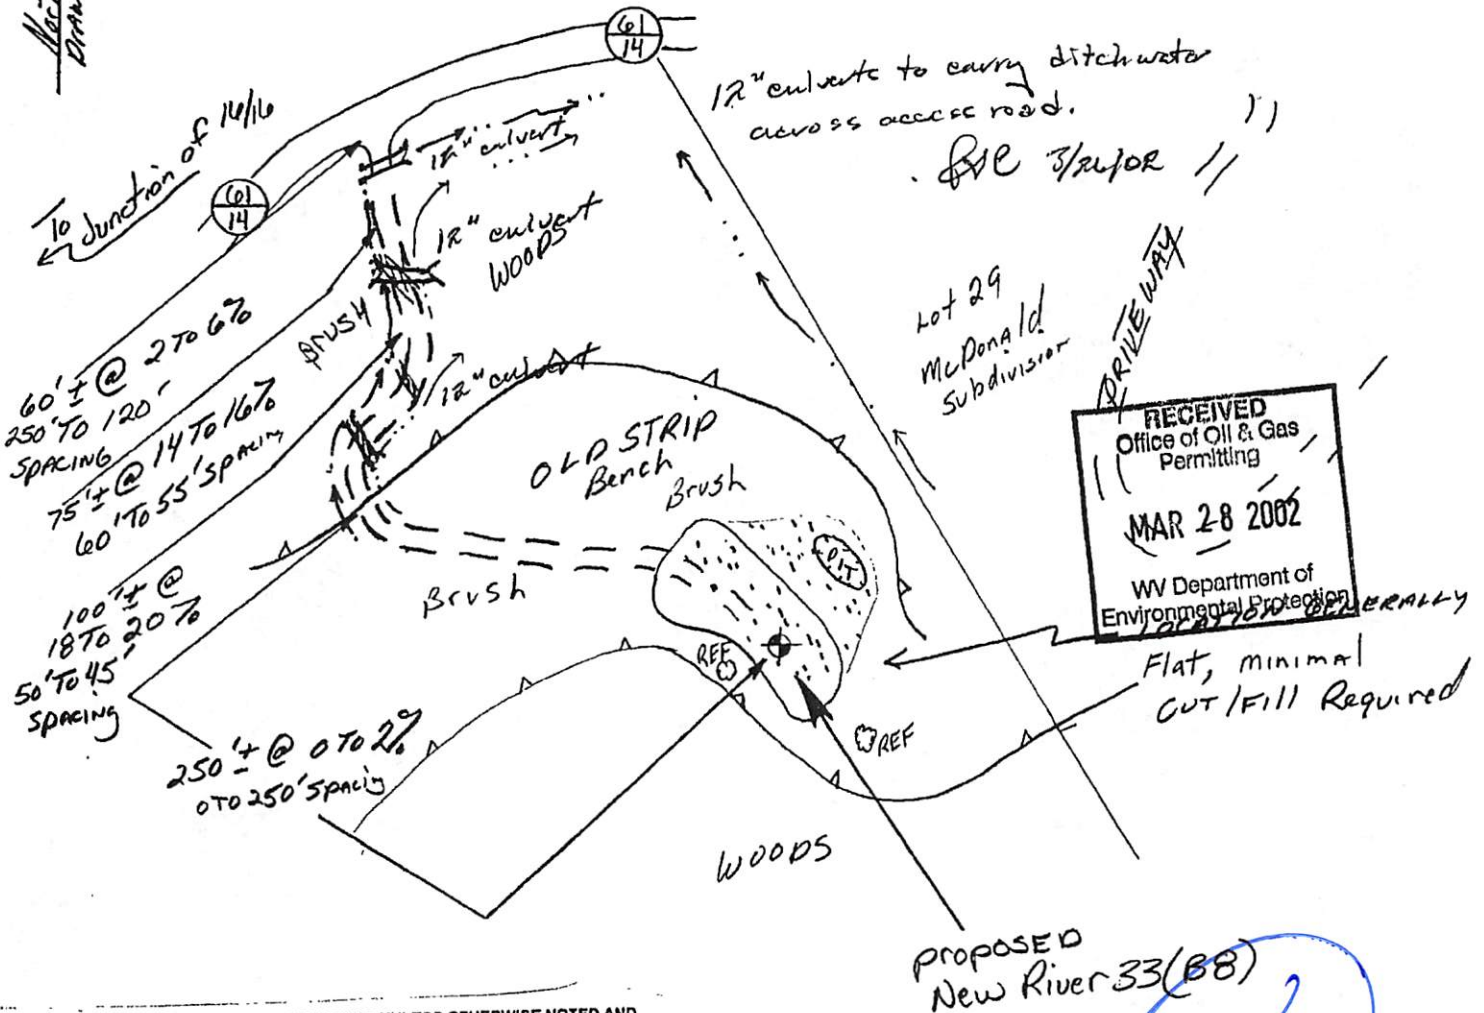 61
14
12" culverts to carry ditchwater
across access road.
3/26/02
To Junction of 14/16
61
14
12" culvert
12" culvert
WOODS
BRUSH
12" culvert
60'± @ 2 TO 6%
250' TO 120'
SPACING
75'± @ 14 TO 16%
60' TO 55' SPACING
100'± @
18 TO 20%
50' TO 45'
SPACING
250'± @ 0 TO 2%
0 TO 250' SPACING
OLD STRIP
Bench
Brush
Brush
PIT
REF
REF
WOODS
Lot 29
McDonald
Subdivision
DRIVEWAY
RECEIVED
Office of Oil & Gas
Permitting
MAR 28 2002
WV Department of
Environmental Protection
LOCATION GENERALLY
Flat, minimal
CUT/Fill Required
proposed
New River 33(B8)
OTHERWISE NOTED AND